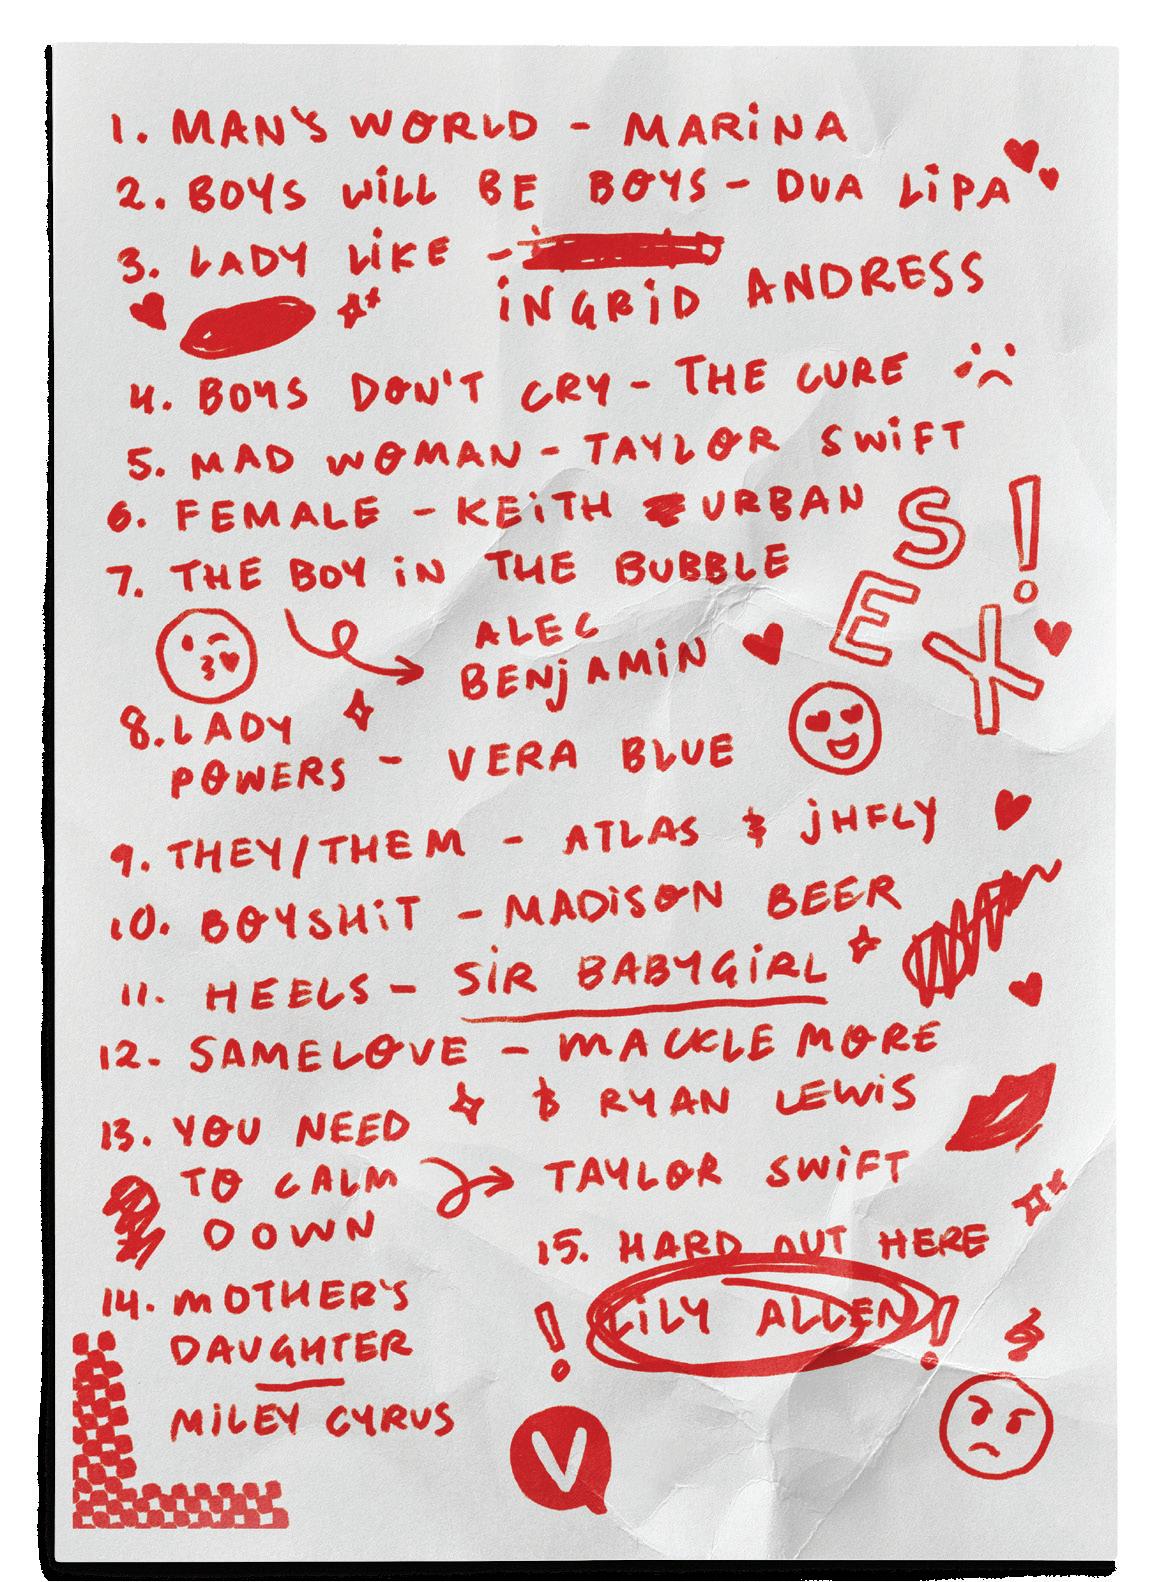 1. MAN'S WORLD - MARiNA
2. BOYS WiLL BE BOYS - DUA LiPA
3. LADY LiKE -
iNGRiD ANDRESS
4. BOYS DON'T CRY - THE CURE
5. MAD WOMAN - TAYLOR SWiFT
6. FEMALE - KEiTH URBAN
7. THE BOY iN THE BUBBLE
ALEC
BENjAMiN
SEX!
8. LADY
POWERS - VERA BLUE
9. THEY/THEM - ATLAS & jHFLY
10. BOYSHiT - MADiSON BEER
11. HEELS - SiR BABYGiRL
12. SAMELOVE - MACKLEMORE
& RYAN LEWiS
13. YOU NEED
TO CALM
DOWN
TAYLOR SWiFT
14. MOTHER'S
DAUGHTER
MiLEY CYRUS
15. HARD OUT HERE
! LiLY ALLEN !
V